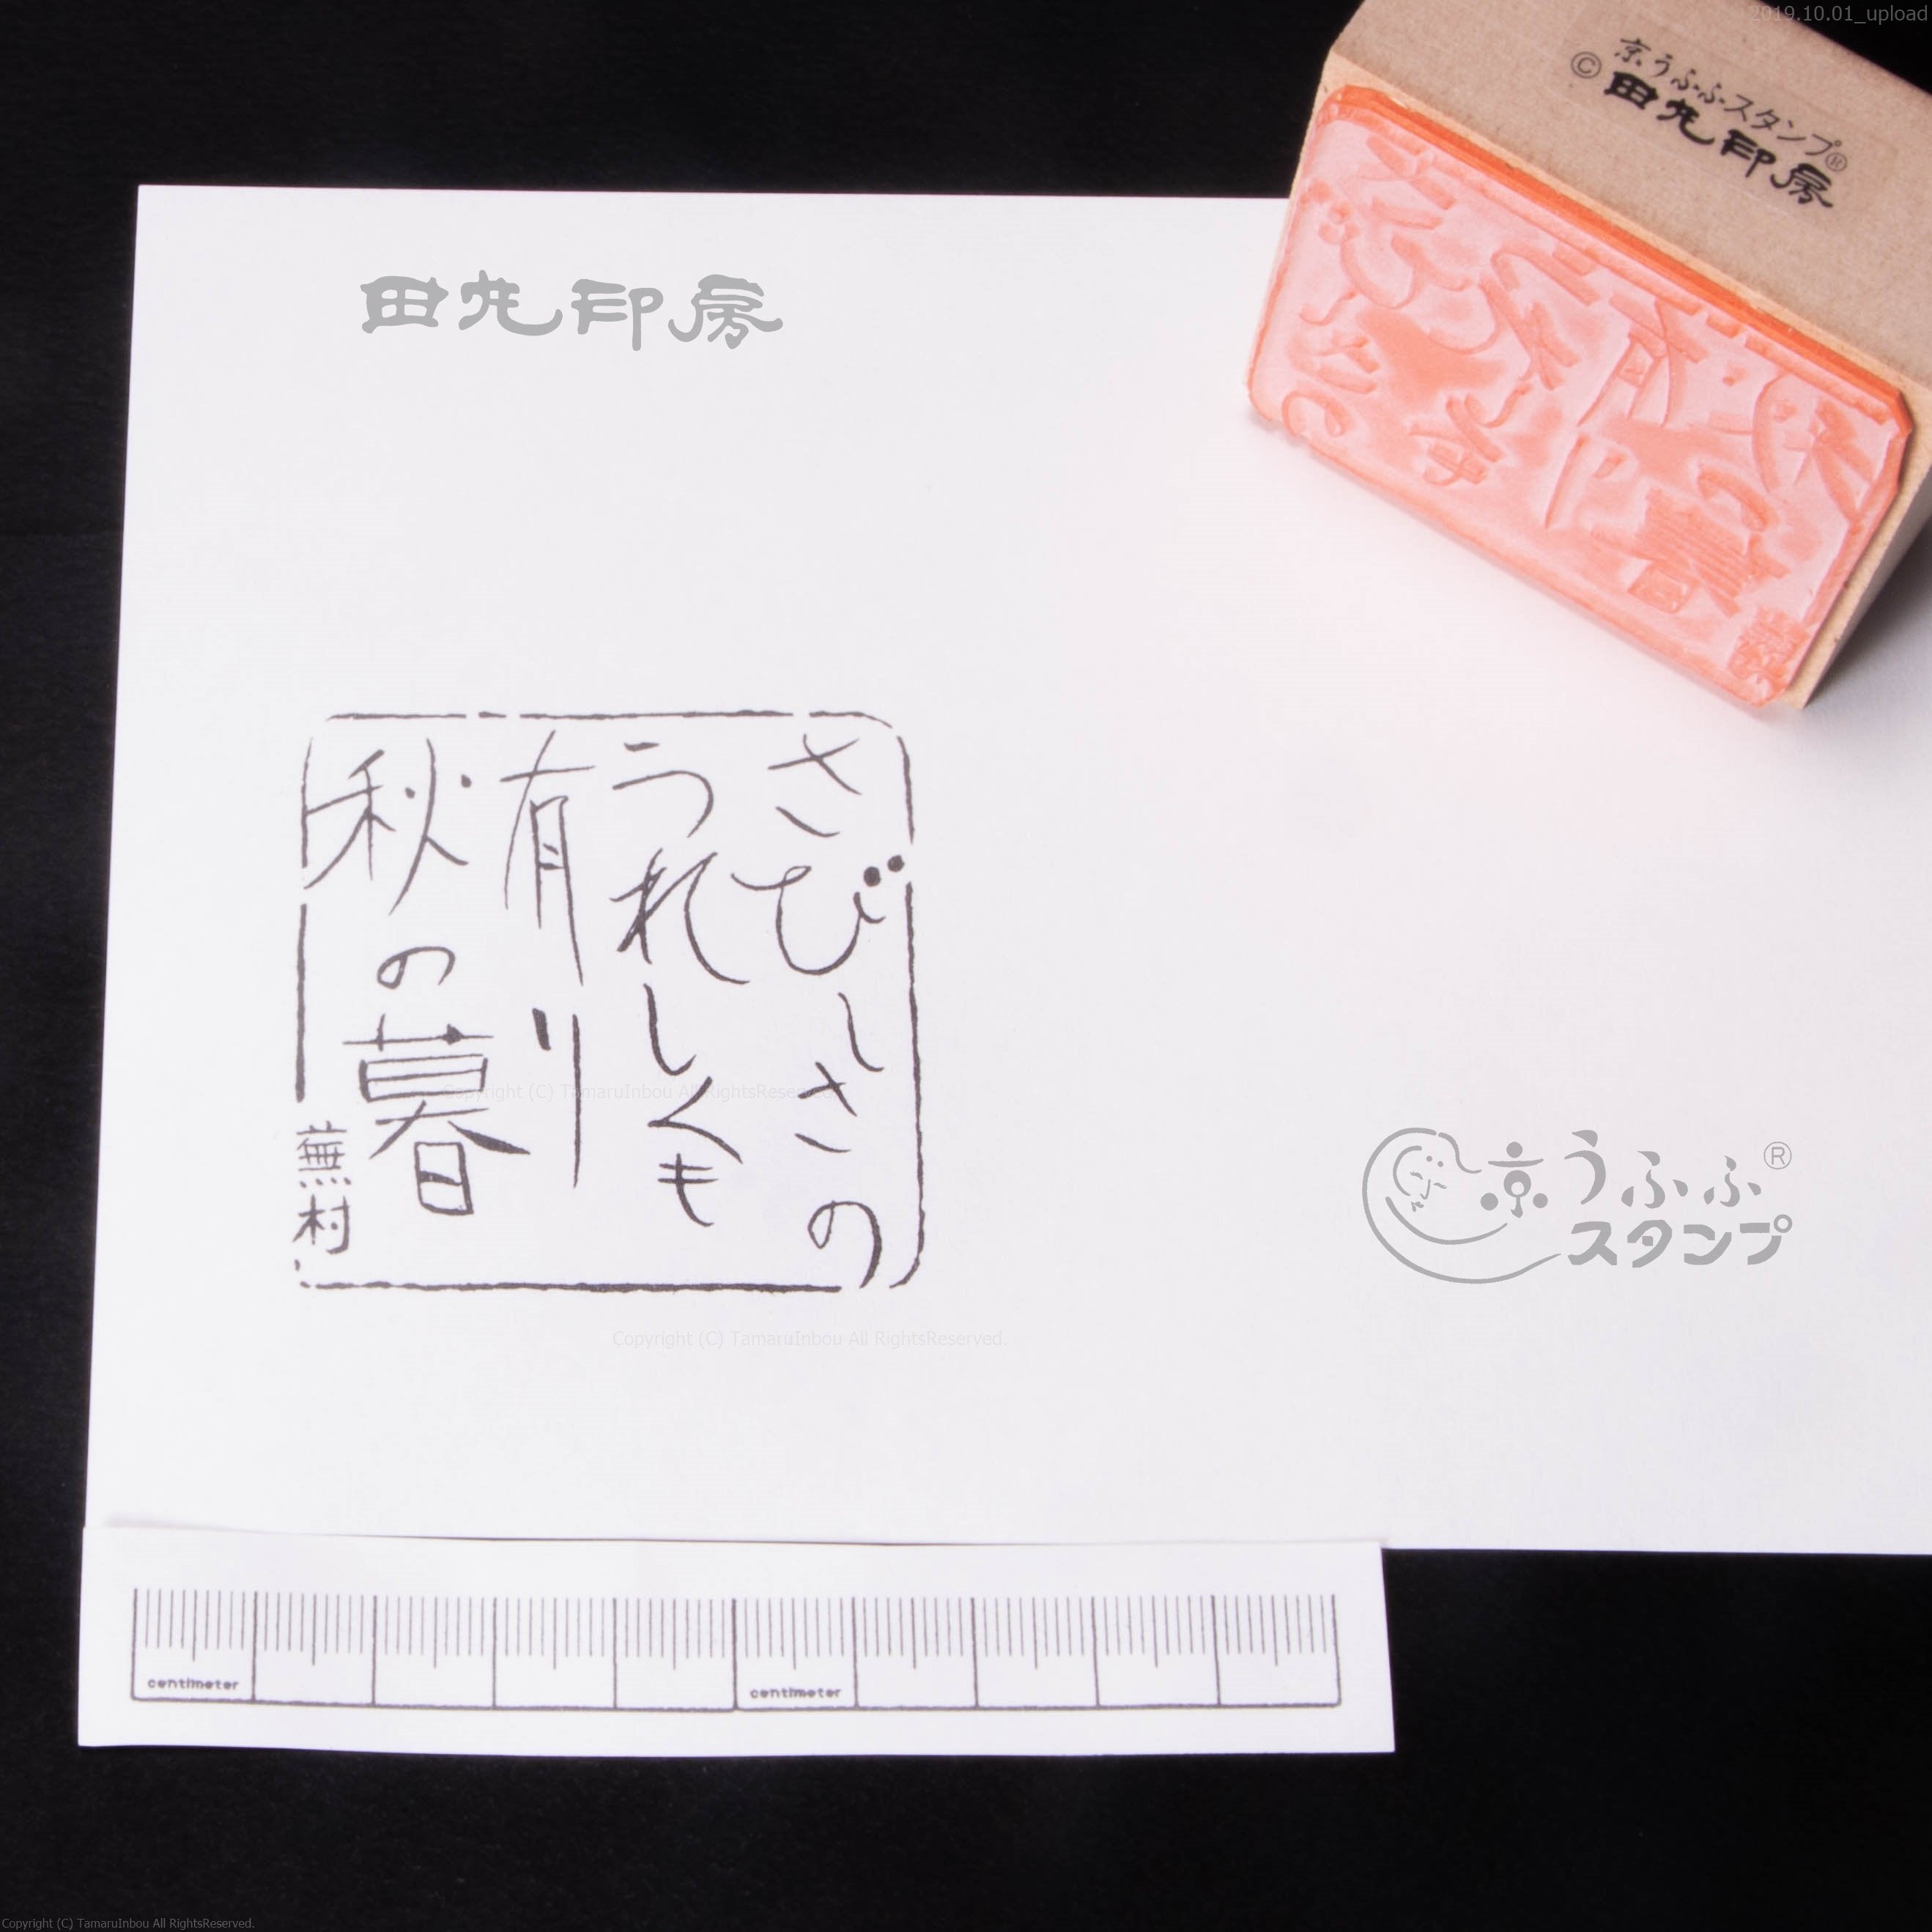 2019.10.01_upload
京うふふスタンプ®
©田丸印房
田丸印房
さびしさの
うれしくも
有り
秋の暮
蕪村
Copyright (C) TamaruInbou All RightsReserved.
京うふふ®
スタンプ
Copyright (C) TamaruInbou All RightsReserved.
centimeter
centimeter
Copyright (C) TamaruInbou All RightsReserved.